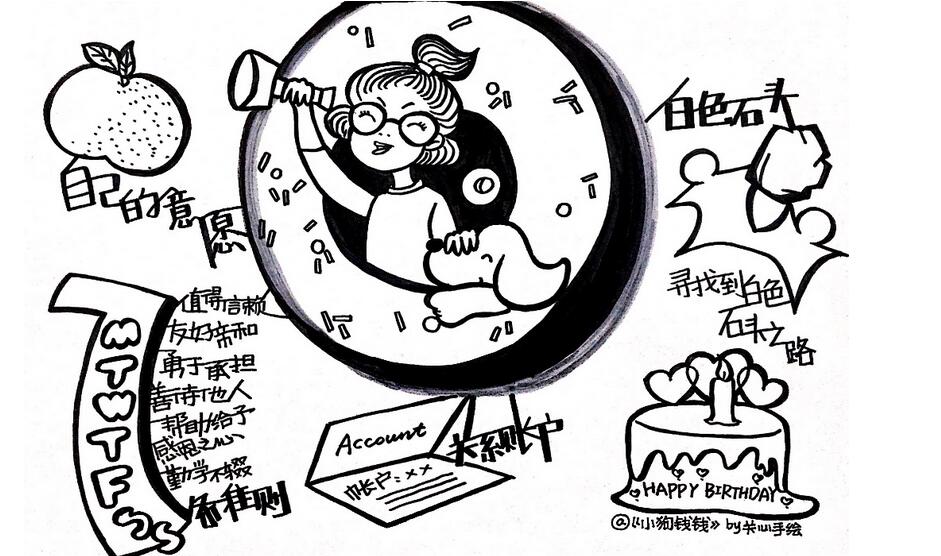 自己的意愿
白色石头
寻找到白色
石头之路
M
T
W
T
F
S
S
值得信赖
友好亲和
勇于承担
善待他人
帮助给予
感恩之心
勤学不辍
准则
Account
帐户：××
关系账户
HAPPY BIRTHDAY
@《小狗钱钱》by关心手绘